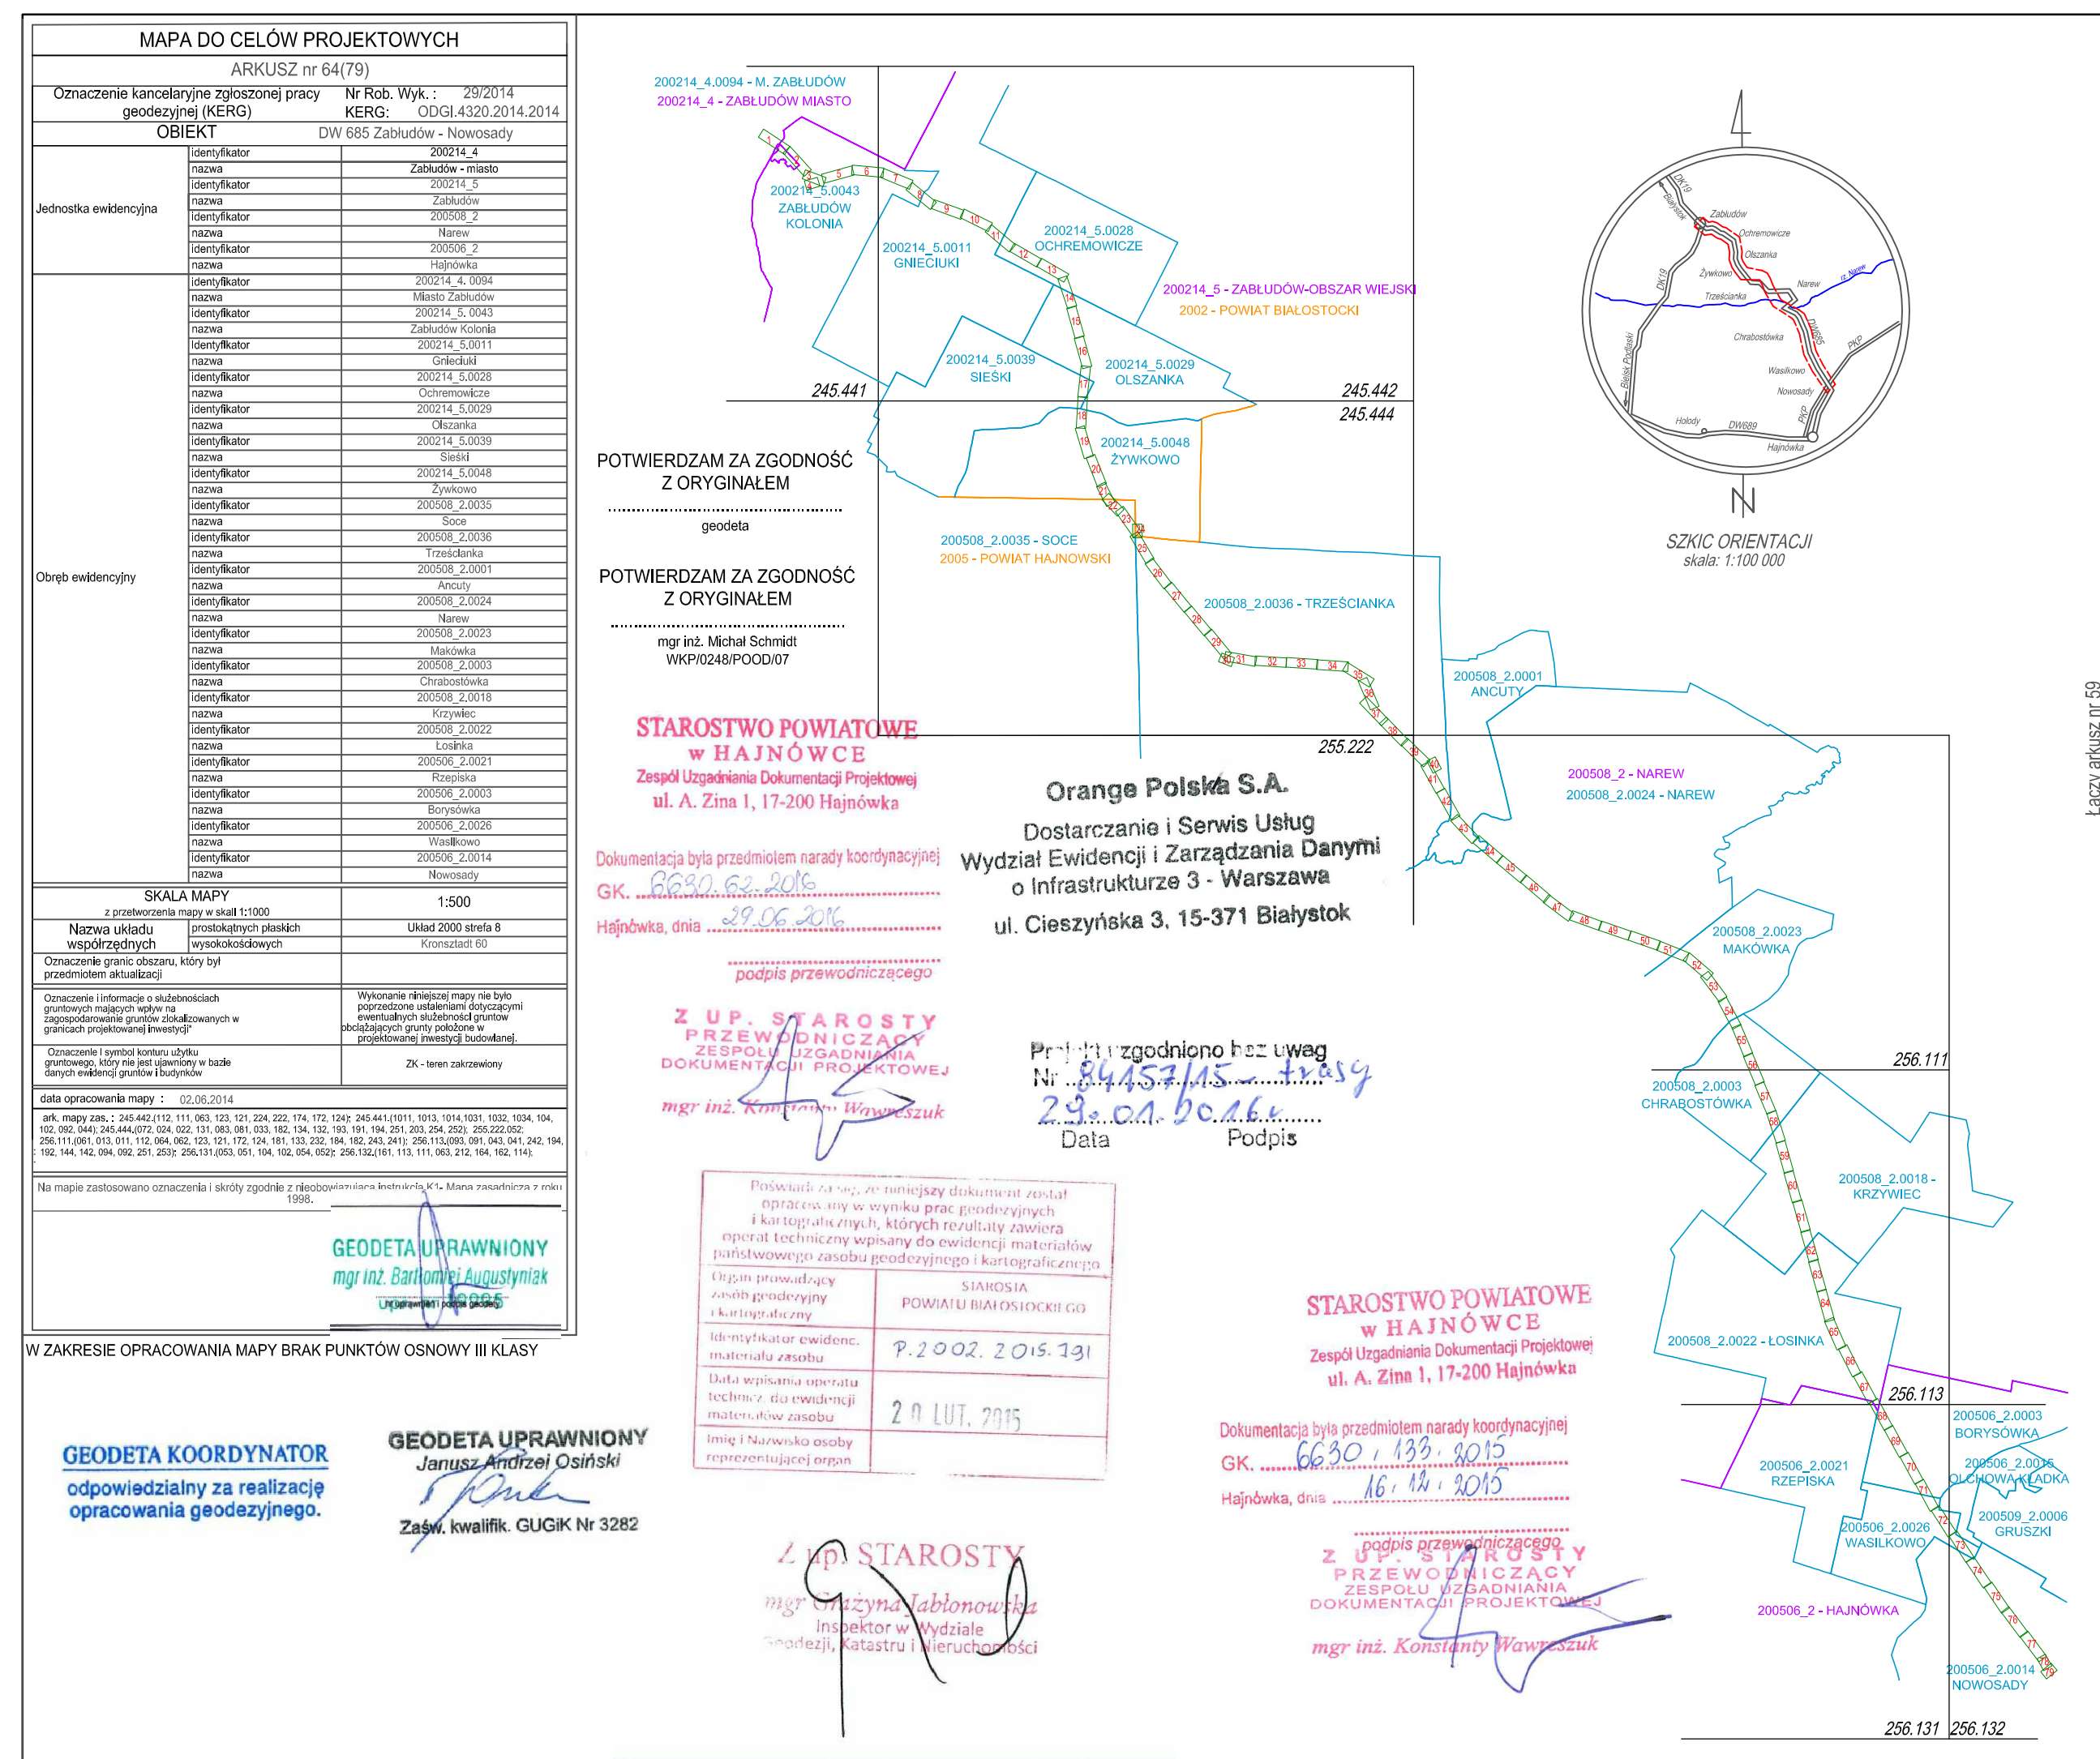 MAPA DO CELÓW PROJEKTOWYCH
ARKUSZ nr 64(79)
Oznaczenie kancelaryjne zgłoszonej pracy
geodezyjnej (KERG)
Nr Rob. Wyk. : 29/2014
KERG: ODGI.4320.2014.2014
OBIEKT DW 685 Zabłudów - Nowosady
Jednostka ewidencyjna
identyfikator 200214_4
nazwa Zabłudów - miasto
identyfikator 200214_5
nazwa Zabłudów
identyfikator 200508_2
nazwa Narew
identyfikator 200506_2
nazwa Hajnówka
Obręb ewidencyjny
identyfikator 200214_4. 0094
nazwa Miasto Zabłudów
identyfikator 200214_5. 0043
nazwa Zabłudów Kolonia
identyfikator 200214_5.0011
nazwa Gnieciuki
identyfikator 200214_5.0028
nazwa Ochremowicze
identyfikator 200214_5.0029
nazwa Olszanka
identyfikator 200214_5.0039
nazwa Sieśki
identyfikator 200214_5.0048
nazwa Żywkowo
identyfikator 200508_2.0035
nazwa Soce
identyfikator 200508_2.0036
nazwa Trześcianka
identyfikator 200508_2.0001
nazwa Ancuty
identyfikator 200508_2.0024
nazwa Narew
identyfikator 200508_2.0023
nazwa Makówka
identyfikator 200508_2.0003
nazwa Chrabostówka
identyfikator 200508_2.0018
nazwa Krzywiec
identyfikator 200508_2.0022
nazwa Łosinka
identyfikator 200506_2.0021
nazwa Rzepiska
identyfikator 200506_2.0003
nazwa Borysówka
identyfikator 200506_2.0026
nazwa Wasilkowo
identyfikator 200506_2.0014
nazwa Nowosady
SKALA MAPY
z przetworzenia mapy w skali 1:1000
1:500
Nazwa układu
współrzędnych
prostokątnych płaskich Układ 2000 strefa 8
wysokokościowych Kronsztadt 60
Oznaczenie granic obszaru, który był
przedmiotem aktualizacji
Oznaczenie i informacje o służebnościach
gruntowych mających wpływ na
zagospodarowanie gruntów zlokalizowanych w
granicach projektowanej inwestycji*
Wykonanie niniejszej mapy nie było
poprzedzone ustaleniami dotyczącymi
ewentualnych służebności gruntow
obciążających grunty położone w
projektowanej inwestycji budowlanej.
Oznaczenie i symbol konturu użytku
gruntowego, który nie jest ujawniony w bazie
danych ewidencji gruntów i budynków
ZK - teren zakrzewiony
data opracowania mapy : 02.06.2014
ark. mapy zas. : 245.442.(112, 111, 063, 123, 121, 224, 222, 174, 172, 124); 245.441.(1011, 1013, 1014,1031, 1032, 1034, 104,
102, 092, 044); 245.444.(072, 024, 022, 131, 083, 081, 033, 182, 134, 132, 193, 191, 194, 251, 203, 254, 252); 255.222.052;
256.111.(061, 013, 011, 112, 064, 062, 123, 121, 172, 124, 181, 133, 232, 184, 182, 243, 241); 256.113.(093, 091, 043, 041, 242, 194,
192, 144, 142, 094, 092, 251, 253); 256.131.(053, 051, 104, 102, 054, 052); 256.132.(161, 113, 111, 063, 212, 164, 162, 114);
Na mapie zastosowano oznaczenia i skróty zgodnie z nieobowiązującą instrukcją K1- Mapa zasadnicza z roku
1998.
GEODETA UPRAWNIONY
mgr inż. Bartłomiej Augustyniak
nr uprawnień i podpis geodety
W ZAKRESIE OPRACOWANIA MAPY BRAK PUNKTÓW OSNOWY III KLASY
GEODETA KOORDYNATOR
odpowiedzialny za realizację
opracowania geodezyjnego.
GEODETA UPRAWNIONY
Janusz Andrzej Osiński
Zaśw. kwalifik. GUGiK Nr 3282
POTWIERDZAM ZA ZGODNOŚĆ
Z ORYGINAŁEM
geodeta
POTWIERDZAM ZA ZGODNOŚĆ
Z ORYGINAŁEM
mgr inż. Michał Schmidt
WKP/0248/POOD/07
STAROSTWO POWIATOWE
w HAJNÓWCE
Zespół Uzgadniania Dokumentacji Projektowej
ul. A. Zina 1, 17-200 Hajnówka
Dokumentacja była przedmiotem narady koordynacyjnej
GK. 6630.62.2016
Hajnówka, dnia 29.06.2016
podpis przewodniczącego
Z UP. STAROSTY
PRZEWODNICZĄCY
ZESPOŁU UZGADNIANIA
DOKUMENTACJI PROJEKTOWEJ
mgr inż. Konstanty Wawreszuk
Orange Polska S.A.
Dostarczanie i Serwis Usług
Wydział Ewidencji i Zarządzania Danymi
o Infrastrukturze 3 - Warszawa
ul. Cieszyńska 3, 15-371 Białystok
Projekt uzgodniono bez uwag
Nr 84157/15 - trasy
29.01.2016r
Data Podpis
Poświadcza się, że niniejszy dokument został
opracowany w wyniku prac geodezyjnych
i kartograficznych, których rezultaty zawiera
operat techniczny wpisany do ewidencji materiałów
państwowego zasobu geodezyjnego i kartograficznego
Organ prowadzący
zasób geodezyjny
i kartograficzny
STAROSTA
POWIATU BIAŁOSTOCKIEGO
Identyfikator ewidenc.
materiału zasobu
P.2002.2015.791
Data wpisania operatu
technicz. do ewidencji
materiałów zasobu
20 LUT. 2015
Imię i Nazwisko osoby
reprezentującej organ
Z up. STAROSTY
mgr Grażyna Jabłonowska
Inspektor w Wydziale
Geodezji, Katastru i Nieruchomości
STAROSTWO POWIATOWE
w HAJNÓWCE
Zespół Uzgadniania Dokumentacji Projektowej
ul. A. Zina 1, 17-200 Hajnówka
Dokumentacja była przedmiotem narady koordynacyjnej
GK. 6630.133.2015
Hajnówka, dnia 16.12.2015
podpis przewodniczącego
Z UP. STAROSTY
PRZEWODNICZĄCY
ZESPOŁU UZGADNIANIA
DOKUMENTACJI PROJEKTOWEJ
mgr inż. Konstanty Wawreszuk
200214_4.0094 - M. ZABŁUDÓW
200214_4 - ZABŁUDÓW MIASTO
200214_5.0043
ZABŁUDÓW
KOLONIA
200214_5.0011
GNIECIUKI
200214_5.0028
OCHREMOWICZE
200214_5 - ZABŁUDÓW-OBSZAR WIEJSKI
2002 - POWIAT BIAŁOSTOCKI
200214_5.0039
SIEŚKI
200214_5.0029
OLSZANKA
245.441
245.442
245.444
200214_5.0048
ŻYWKOWO
200508_2.0035 - SOCE
2005 - POWIAT HAJNOWSKI
200508_2.0036 - TRZEŚCIANKA
200508_2.0001
ANCUTY
255.222
200508_2 - NAREW
200508_2.0024 - NAREW
200508_2.0023
MAKÓWKA
256.111
200508_2.0003
CHRABOSTÓWKA
200508_2.0018 -
KRZYWIEC
200508_2.0022 - ŁOSINKA
256.113
200506_2.0003
BORYSÓWKA
200506_2.0021
RZEPISKA
200506_2.0015
OLCHOWA KŁADKA
200506_2.0026
WASILKOWO
200509_2.0006
GRUSZKI
200506_2 - HAJNÓWKA
200506_2.0014
NOWOSADY
256.131
256.132
1 2 3 4 5 6 7 8 9 10 11 12 13 14 15 16 17 18 19 20 21 22 23 24 25 26 27 28 29 30 31 32 33 34 35 36 37 38 39 40 41 42 43 44 45 46 47 48 49 50 51 52 53 54 55 56 57 58 59 60 61 62 63 64 65 66 67 68 69 70 71 72 73 74 75 76 77 78 79
DK19
Białystok
Zabłudów
Ochremowicze
Olszanka
Żywkowo
DK19
Trześcianka
Narew
rz. Narew
Chrabostówka
DW685
PKP
Bielsk Podlaski
Wasilkowo
Nowosady
PKP
Hołody
DW689
Hajnówka
N
SZKIC ORIENTACJI
skala: 1:100 000
Łączy arkusz nr 59